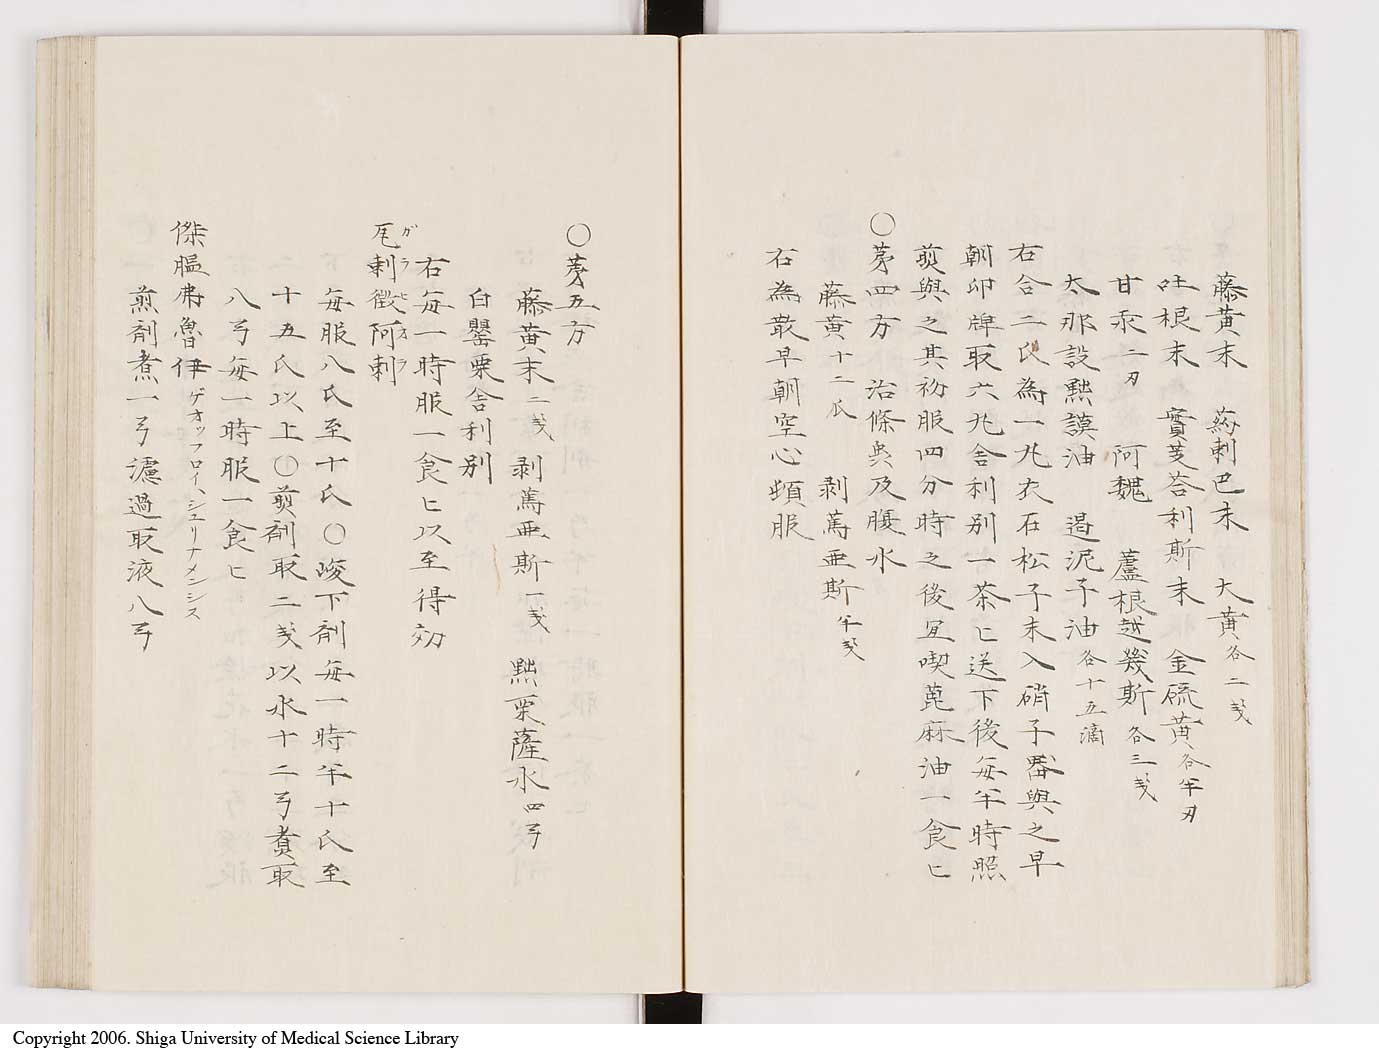 藤黄末 葯剌巴末 大黄各二戔
吐根末 實芰荅利斯末 金硫黄各半刃
甘汞二刃 阿魏 蘆根越幾斯各三戔
太那設黙謨油 過泥子油各十五滴
右合二氏為一丸衣石松子末入硝子器與之早
朝卯牌取六丸舎利別一茶匕送下後毎半時照
前與之其初服四分時之後宜喫蓖麻油一食匕
〇苐四方 治條虫及腹水
藤黄十二瓜 剥篤亜斯半戔
右為散早朝空心頓服
〇苐五方
藤黄末二戔 剥篤亜斯一戔 黙栗薩水四弓
白罌粟舎利別
右毎一時服一食匕以至得効
瓦剌徴阿剌 ガラヒオラ
毎服八氏至十氏〇峻下剤毎一時半十氏至
十五氏以上〇煎剤取二戔以水十二弓煮取
八弓毎一時服一食匕
傑腽弗魯伊 ゲオッフロイ、シュリナメンシス
煎剤煮一弓濾過取液八弓
Copyright 2006. Shiga University of Medical Science Library